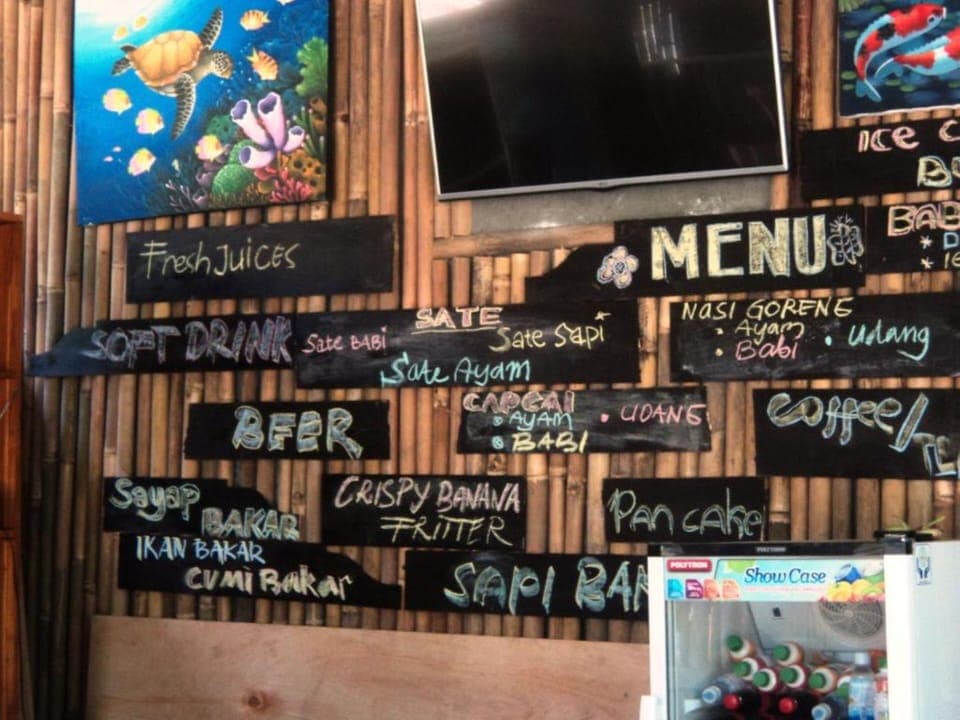 ICE
Fresh Juices
MENU
BAB
SOFT DRINK
SATE
Sate BABi
Sate Sapi
Sate Ayam
NASI GORENG
• Ayam
• Babi
• Udang
BEER
CAPCAI
• AYAM
• UDANG
• BABI
Coffee/
Sayap
BAKAR
CRISPY BANANA
FRITTER
Pan cake
IKAN BAKAR
CUMi Bakar
SAPI BA
POLYTRON
POLYTRON
Show Case